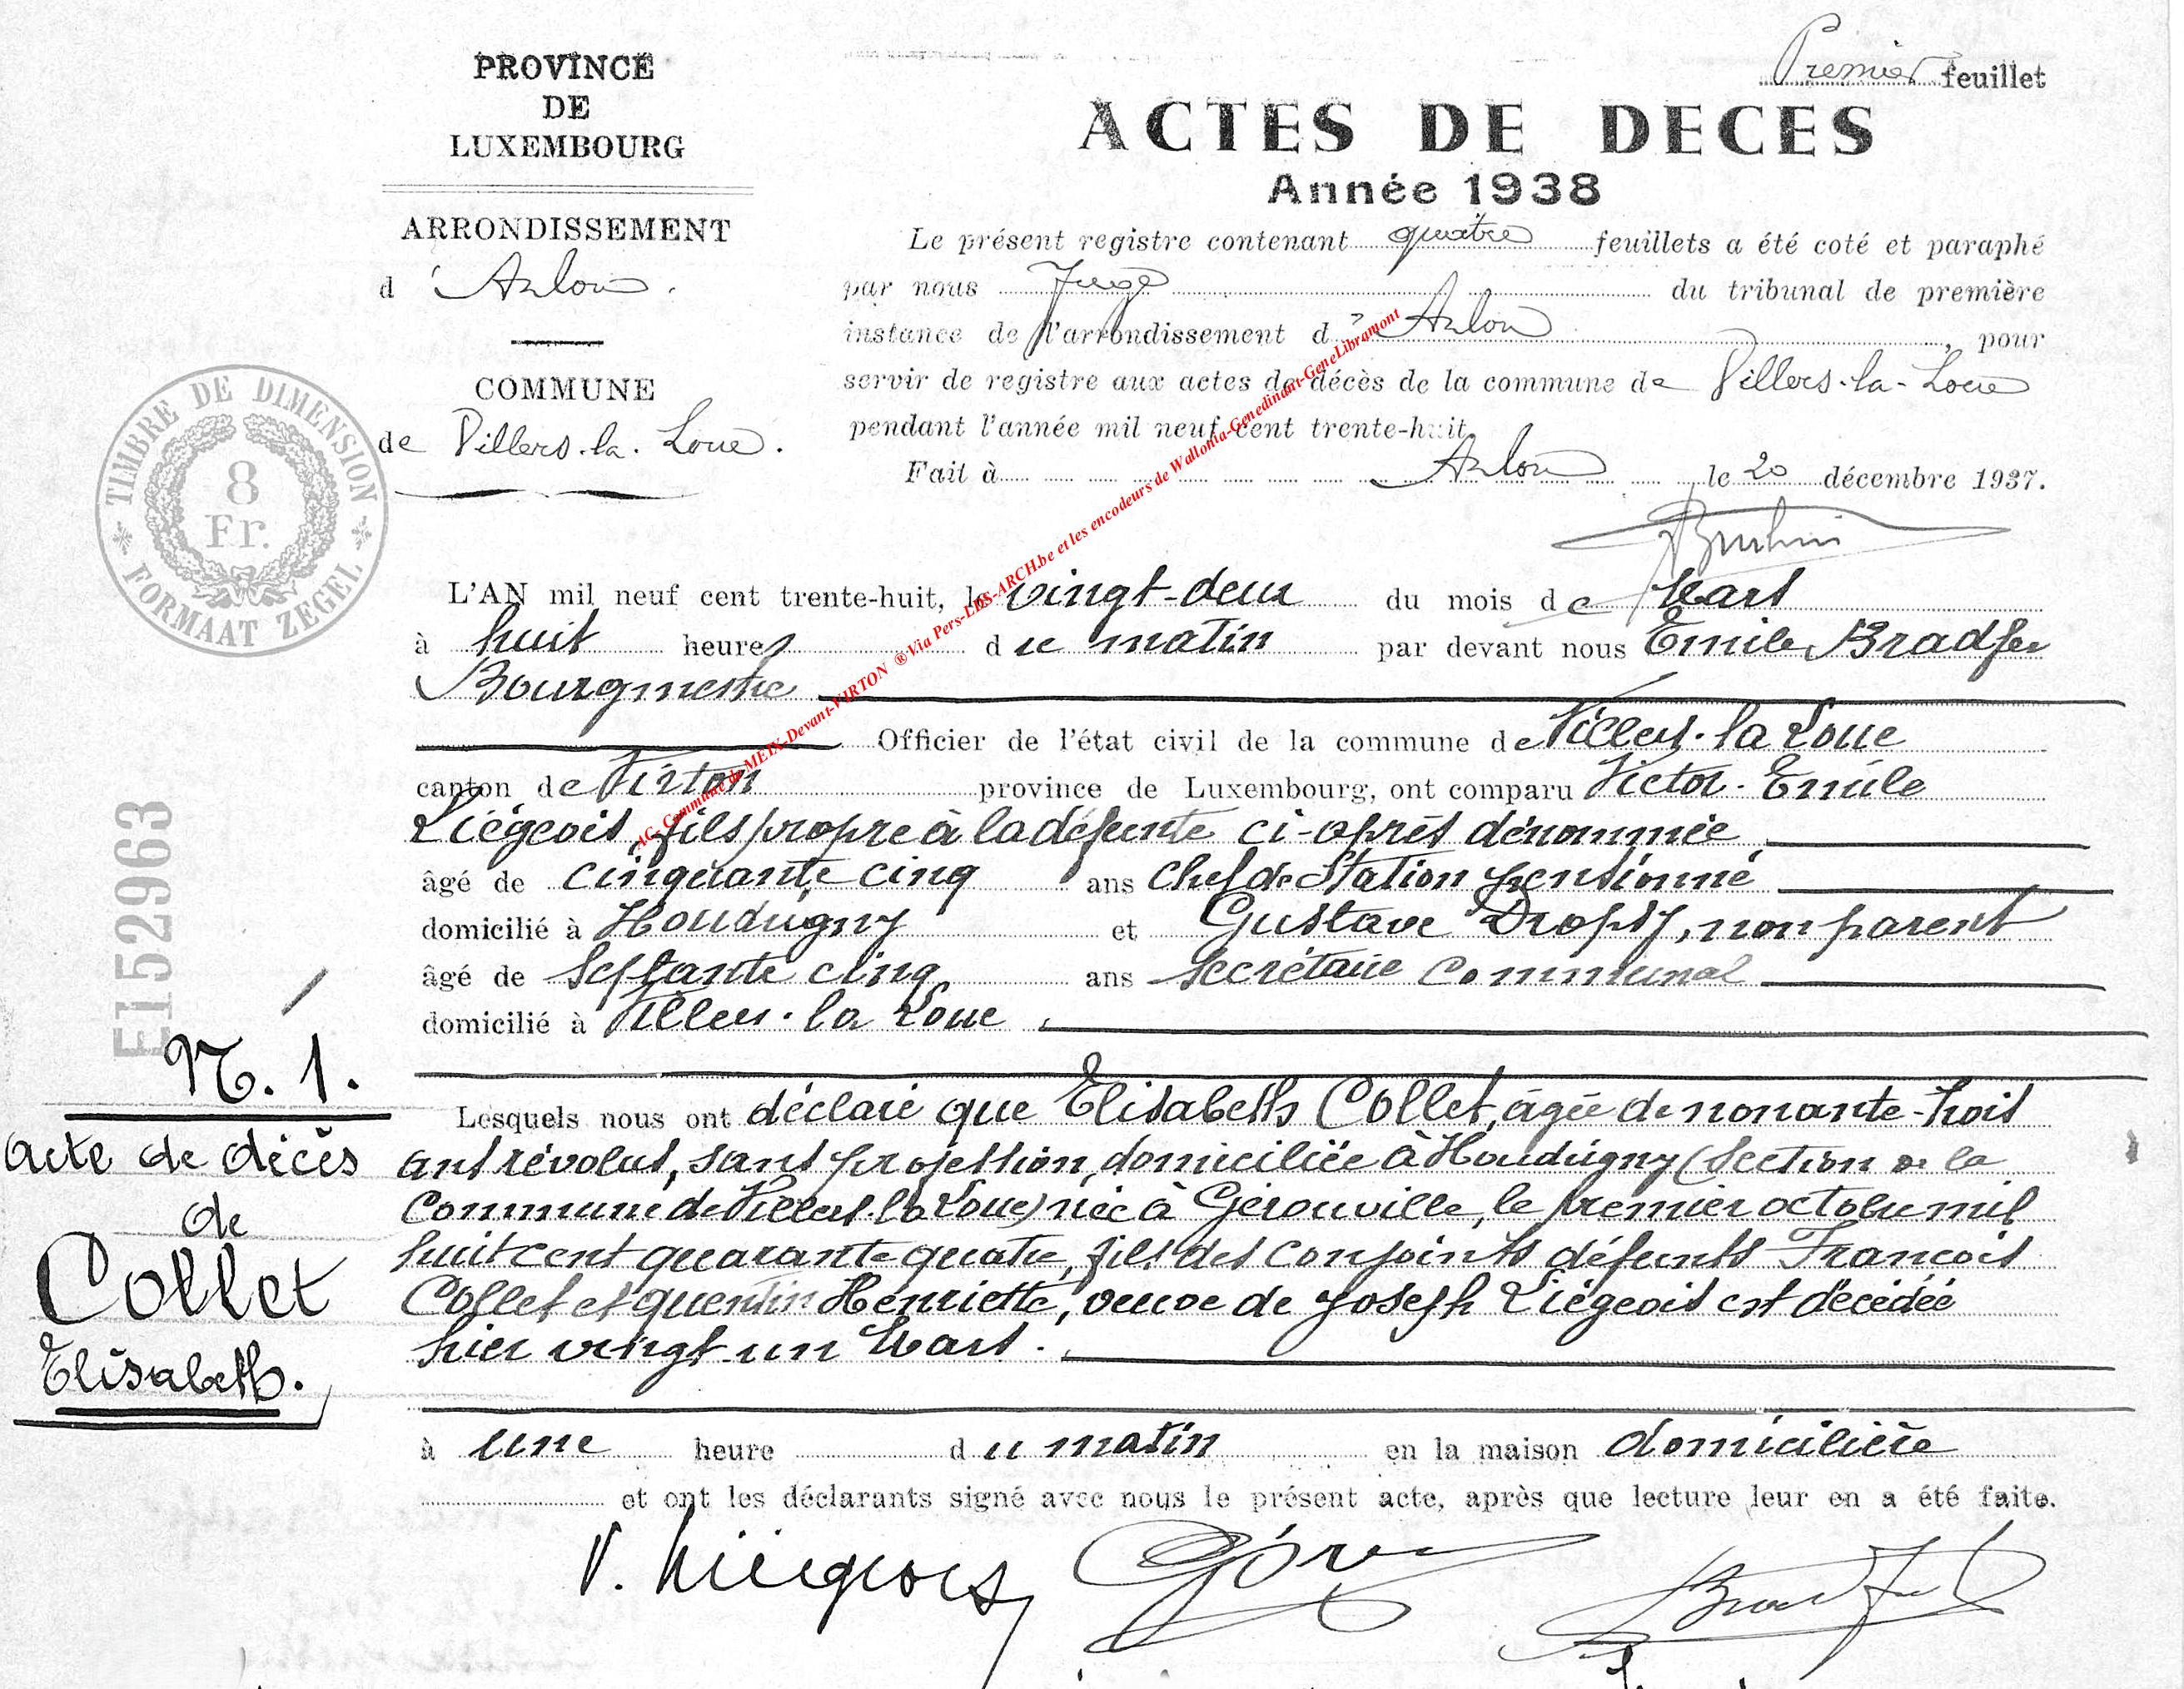 PROVINCE
DE
LUXEMBOURG
ARRONDISSEMENT
d'Arlon.
COMMUNE
de Villers-la-Loue.
TIMBRE DE DIMENSION
8
Fr.
FORMAAT ZEGEL
E152963
Premier feuillet
ACTES DE DECES
Année 1938
Le présent registre contenant quatre feuillets a été coté et paraphé
par nous Juge du tribunal de première
instance de l'arrondissement d'Arlon, pour
servir de registre aux actes de décès de la commune de Villers-la-Loue
pendant l'année mil neuf cent trente-huit.
Fait à Arlon le 20 décembre 1937.
L'AN mil neuf cent trente-huit, le vingt-deux du mois de Mars
à huit heures du matin par devant nous Emile Bradfer
Bourgmestre
Officier de l'état civil de la commune de Villers-la Loue
canton de Virton province de Luxembourg, ont comparu Victor-Emile
Liégeois, fils propre à la défunte ci-après dénommée
âgé de cinquante cinq ans chef de Station pensionné
domicilié à Houdrigny et Gustave Dropsy, non parent
âgé de septante cinq ans secrétaire communal
domicilié à Villers-la Loue,
N. 1.
acte de décès
de
Collet
Elisabeth.
Lesquels nous ont déclaré que Elisabeth Collet, âgée de nonante-trois
ans révolus, sans profession, domiciliée à Houdrigny (section de la
commune de Villers-la Loue) née à Gérouville, le premier octobre mil
huit cent quarante quatre, fille des conjoints défunts François
Collet et Quentin Henriette, veuve de Joseph Liégeois est décédée
hier vingt-un Mars.
à une heure du matin en la maison domicilière
et ont les déclarants signé avec nous le présent acte, après que lecture leur en a été faite.
V. Liégeois
Bradfer
AC. Commune de MEIX-Devant-VIRTON ® Via Pers-LDS-ARCH.be et les encodeurs de Wallonia-Genedinant-GeneLibramont